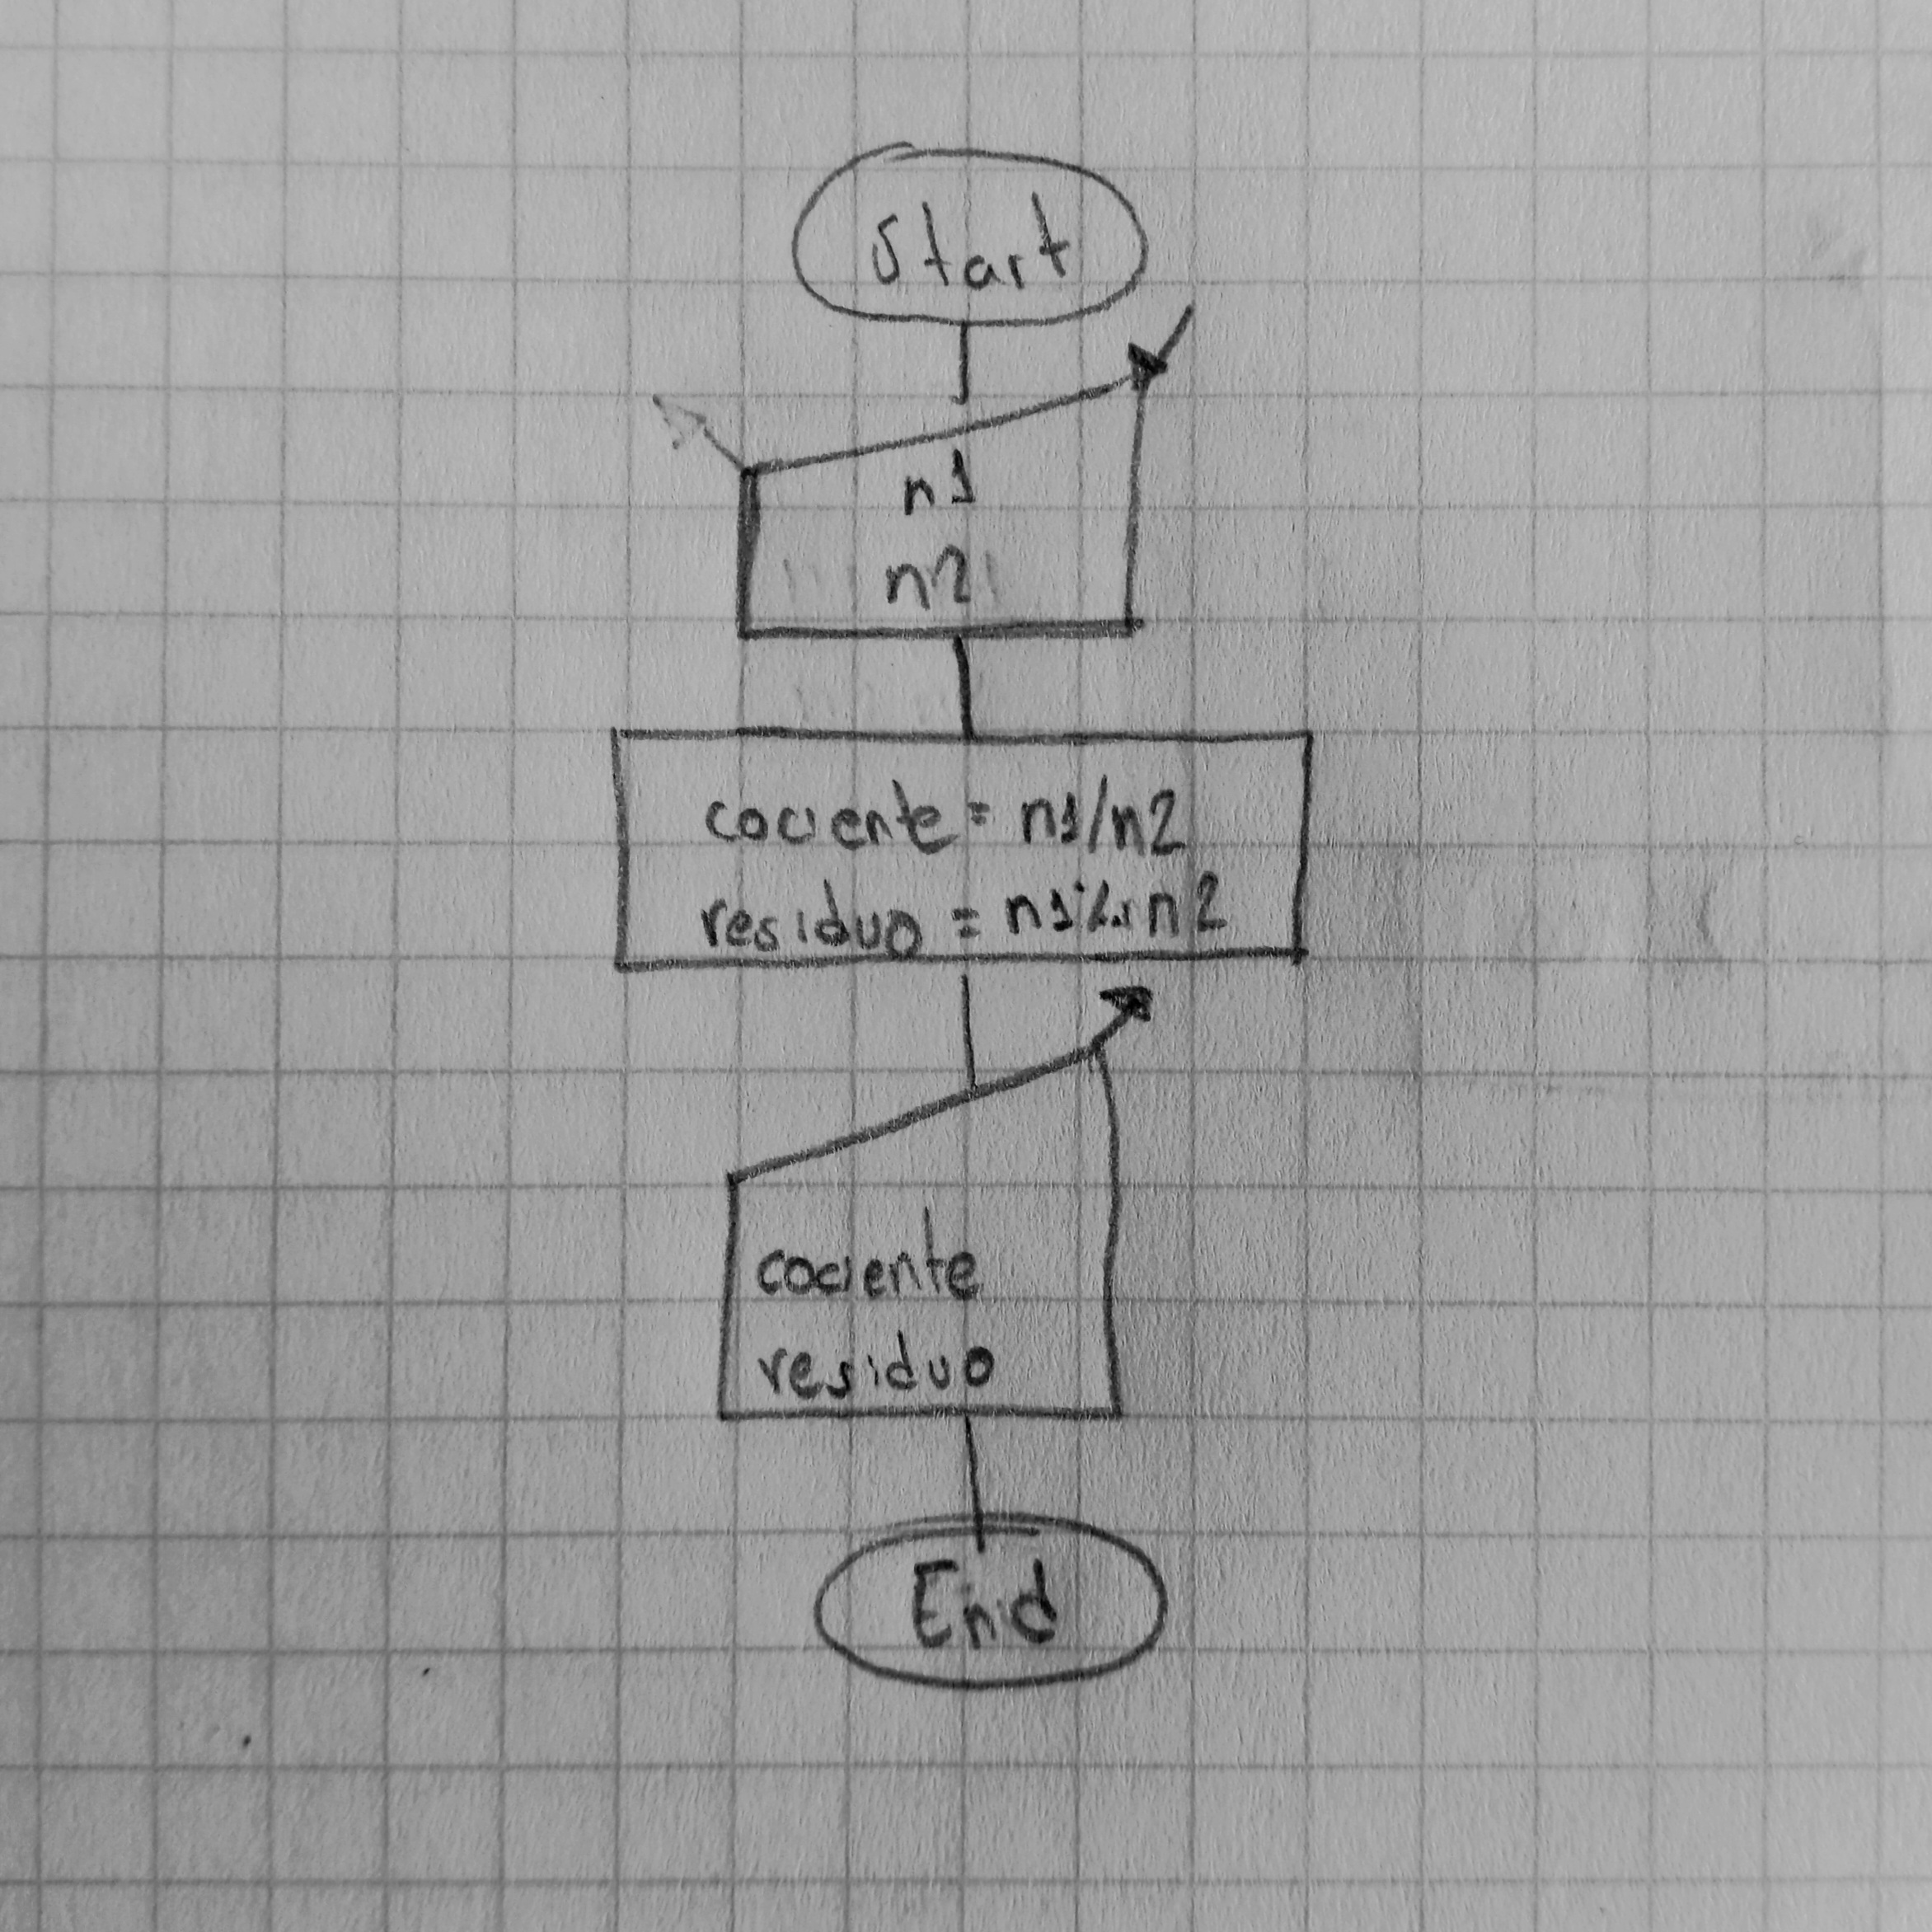 Start
n1
n2
cociente = n1/n2
residuo = n1%n2
cociente
residuo
End